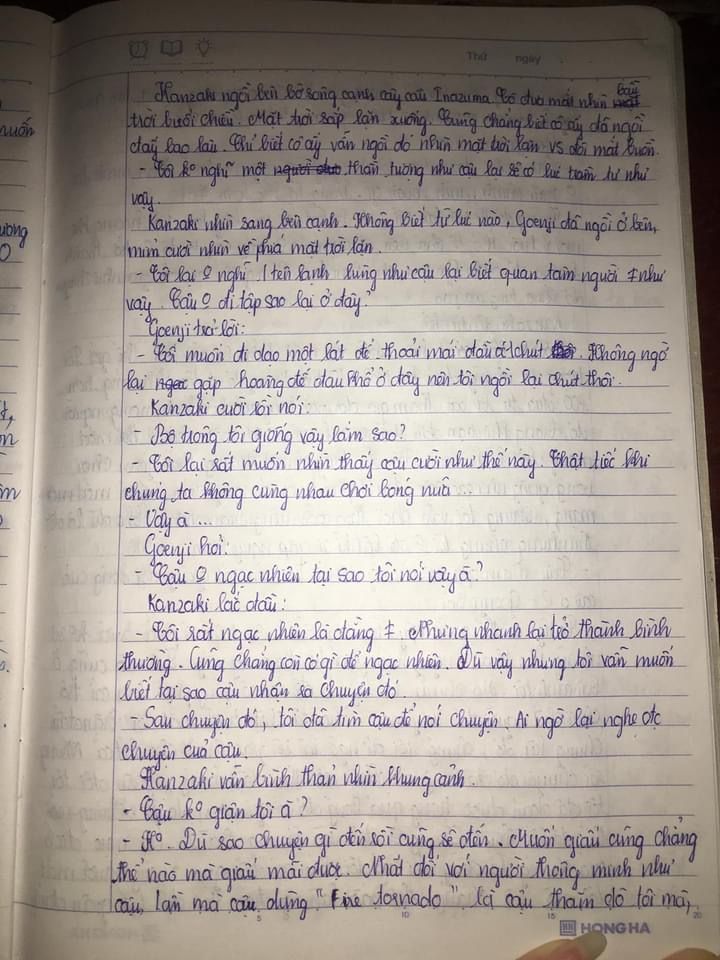 Thứ ngày
Kanzaki ngồi bên bờ sông cạnh cây cầu Inazuma. Cô đưa mắt nhìn bầu
trời buổi chiều. Mặt trời sắp lặn xuống. Cũng chẳng biết cô ấy đã ngồi
đây bao lâu. Chỉ biết cô ấy vẫn ngồi đó nhìn mặt trời lặn vs đôi mắt buồn.
- Tôi k° nghĩ một thần tượng như cậu lại sẽ có lúc trầm tư như
vậy.
Kanzaki nhìn sang bên cạnh. Không biết từ lúc nào, Goenji đã ngồi ở bên,
mỉm cười nhìn về phía mặt trời lặn.
- Tôi lại O nghĩ 1 tên lạnh lùng như cậu lại biết quan tâm người ≠ như
vậy. Cậu O đi tập sao lại ở đây?
Goenji trả lời:
- Tôi muốn đi dạo một lát để thoải mái đầu óc 1 chút. Không ngờ
lại gặp hoàng đế đau khổ ở đây nên tôi ngồi lại chút thôi.
Kanzaki cười rồi nói:
- Bộ trông tôi giống vậy lắm sao?
- Tôi lại rất muốn nhìn thấy cậu cười như thế này. Thật tiếc khi
chúng ta không cùng nhau chơi bóng nữa ...
- Vậy à ...
Goenji hỏi:
- Cậu O ngạc nhiên tại sao tôi nói vậy à?
Kanzaki lắc đầu:
- Tôi rất ngạc nhiên là đằng ≠. Nhưng nhanh lại trở thành bình
thường. Cũng chẳng còn có gì để ngạc nhiên. Dù vậy nhưng tôi vẫn muốn
biết tại sao cậu nhận ra chuyện đó
- Sau chuyện đó, tôi đã tìm cậu để nói chuyện. Ai ngờ lại nghe đc
chuyện của cậu.
Kanzaki vẫn bình thản nhìn khung cảnh.
- Cậu k° giận tôi à?
- K°. Dù sao chuyện gì đến rồi cũng sẽ đến. Muốn giấu cũng chẳng
thể nào mà giấu mãi được. Nhất đối với người thông minh như
cậu, lần mà cậu dùng "Fire tornado" là cậu thăm dò tôi mà,
5 10 15 20
HONG HA